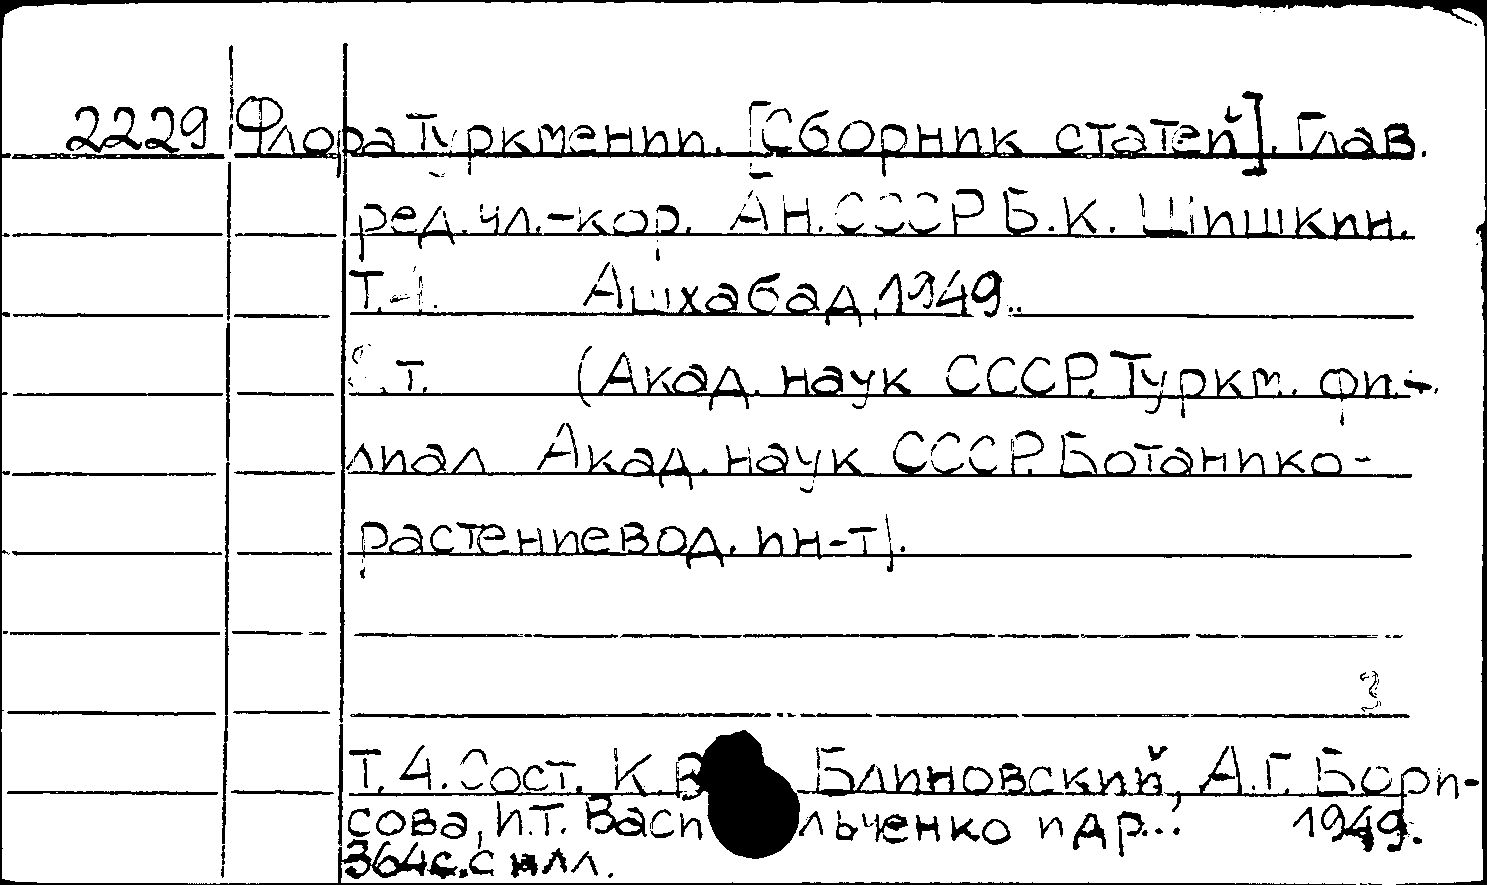 2229 Флора Туркмении. [Сборник статей]. Глав.
ред. чл.-кор. АН. СССР Б. К. Шишкин.
Т.-1. Ашхабад, 1949..
8. т. (Акад. наук СССР. Туркм. фи-
лиал Акад. наук СССР. Ботанико-
растениевод. ин-т).
3
Т. 4. Сост. К. В. Блиновский, А. Г. Бори-
сова, И. Т. Васильченко и др... 1949.
364 с. с илл.